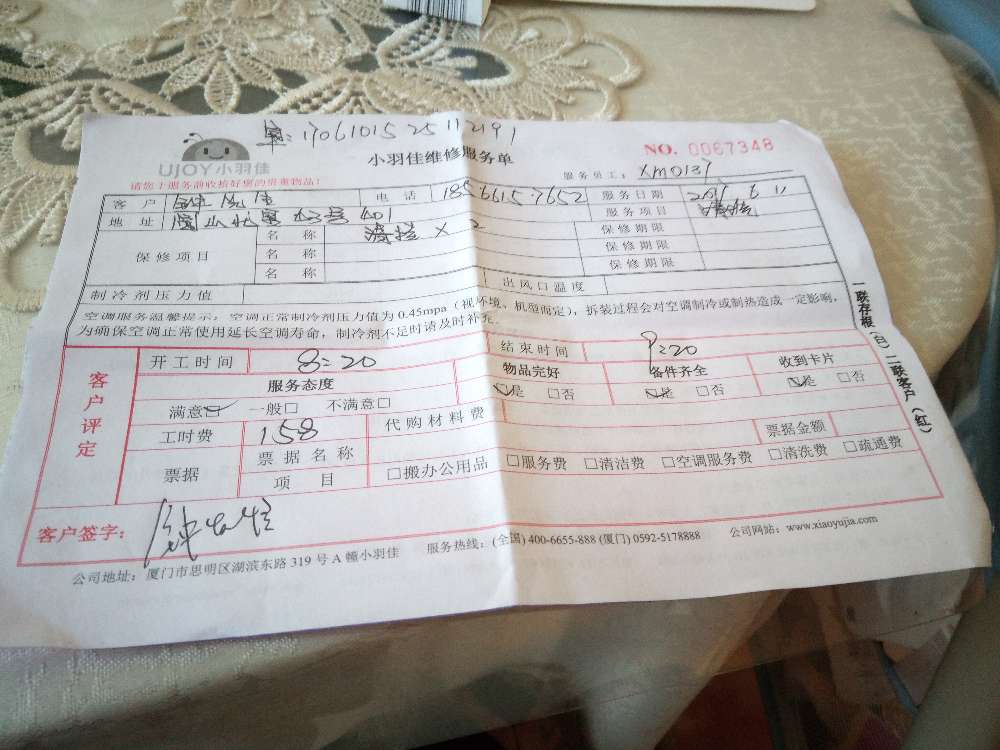 单: 170610152511 2191
小羽佳维修服务单
NO. 0067348
UJOY小羽佳
请您于服务前收拾好您的贵重物品!
服务员工: XM0137
客户 电话 18566157652 服务日期 6 11
地址 401 服务项目 清洗
保修项目 名称 清洗 X 2 保修期限
名称 保修期限
名称 保修期限
制冷剂压力值 出风口温度
空调服务温馨提示: 空调正常制冷剂压力值为 0.45mpa (视环境、机型而定), 拆装过程会对空调制冷或制热造成一定影响,
为确保空调正常使用延长空调寿命, 制冷剂不足时请及时补充。
客户评定
开工时间 8:20 结束时间 9:20
服务态度 物品完好 备件齐全 收到卡片
满意☑ 一般□ 不满意□ ☑是 □否 ☑是 □否 ☑是 □否
工时费 158 代购材料费 票据金额
票据 票据名称 项目 □搬办公用品 □服务费 □清洁费 □空调服务费 □清洗费 □疏通费
客户签字:
公司地址: 厦门市思明区湖滨东路 319 号 A 幢小羽佳 服务热线: (全国) 400-6655-888 (厦门) 0592-5178888 公司网站: www.xiaoyujia.com
一联存根(白)二联客户(红)